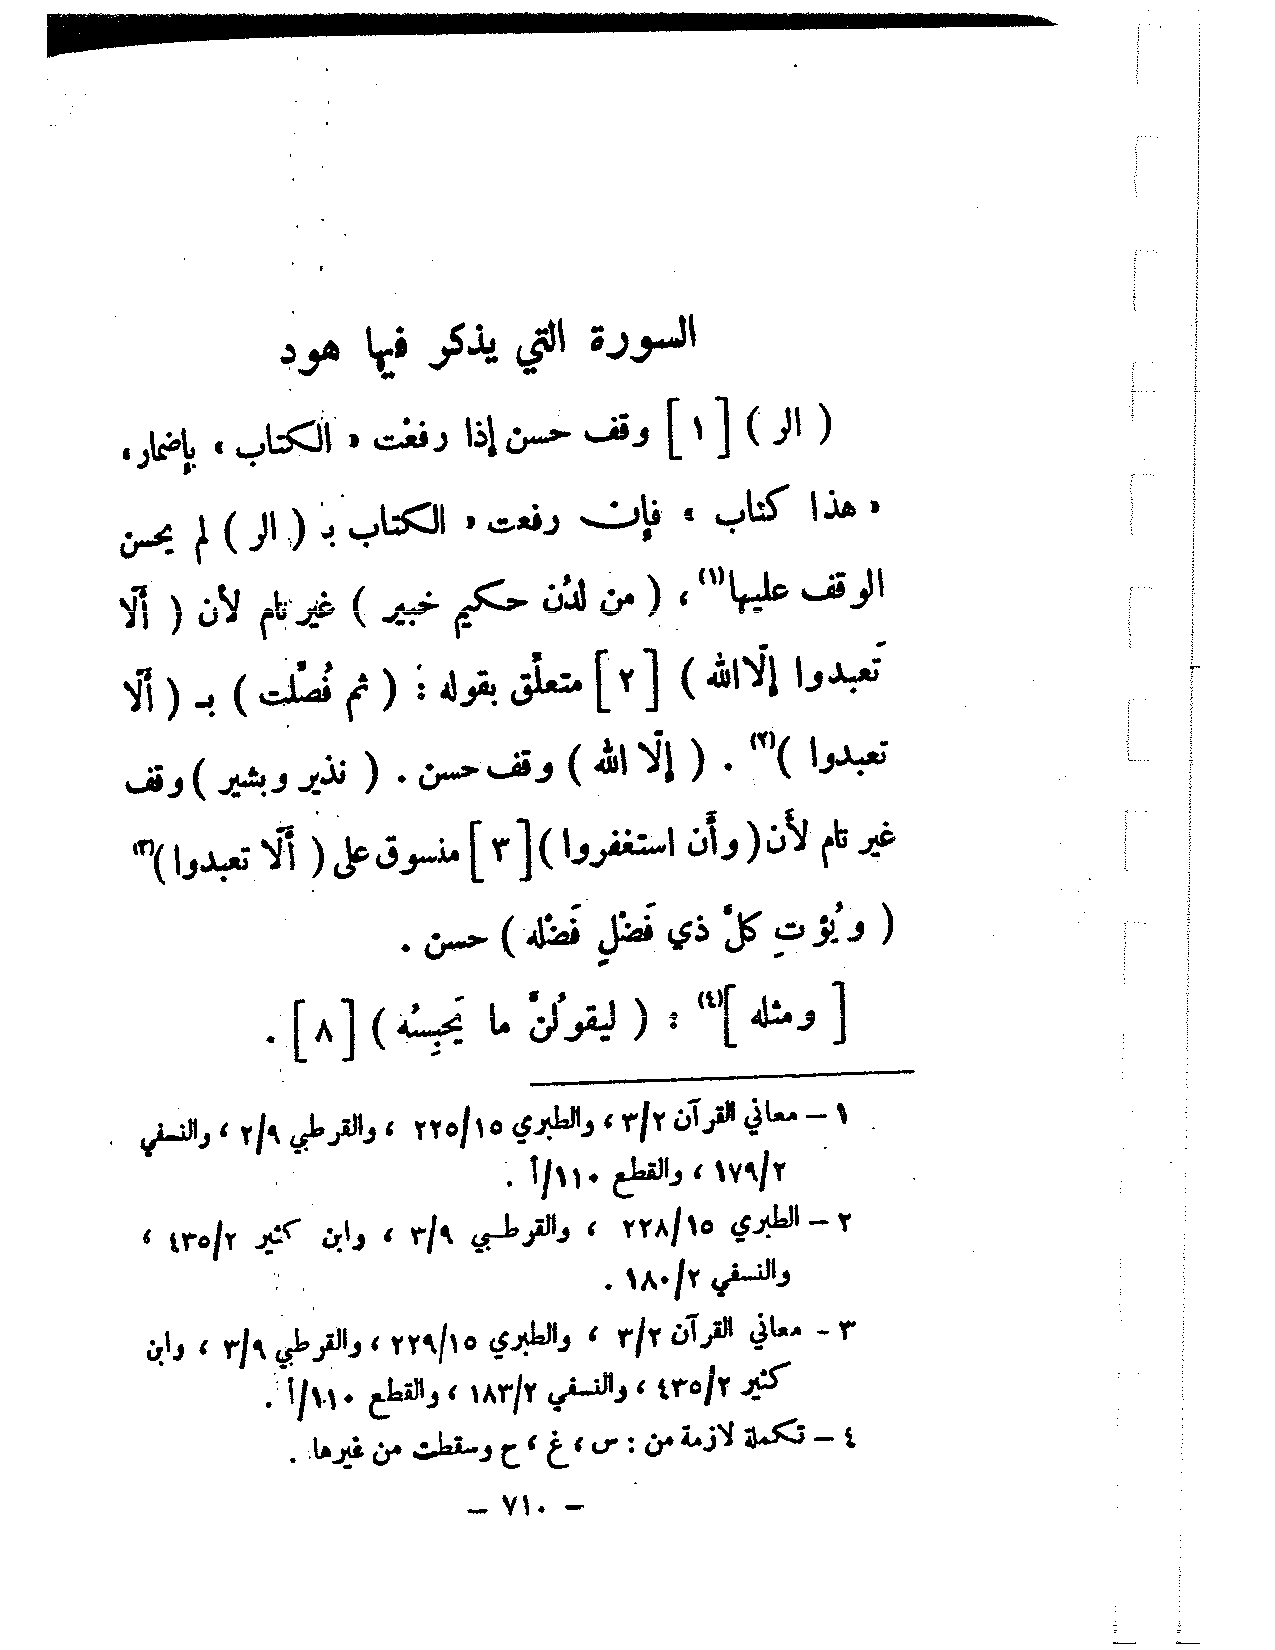 السورة التي يذكر فيها هود
( الر ) [ ١ ] وقف حسن إذا رفعْت « الكتاب » بإضمار،
« هذا كتاب » فإن رفعت « الكتاب بـ ( الر ) لم يحسن
الوقف عليها(١) ، ( من لدُن حكيم خبير ) غير تام لأن ( ألّا
تَعبدوا إلّا الله ) [ ٢ ] متعلّق بقوله : ( ثم فُصّلت ) بـ ( ألّا
تعبدوا )(٢) . ( إلّا الله ) وقف حسن . ( نذير وبشير ) وقف
غير تام لأن ( وأَن استغفروا ) [ ٣ ] منسوق على ( ألّا تعبدوا )(٣)
( ويُؤتِ كلَّ ذي فَضْلٍ فَضْله ) حسن .
[ ومثله ](٤) : ( ليقولُنَّ ما يَحبِسُه ) [ ٨ ] .
١ – معاني القرآن ٣/٢ ، والطبري ٢٢٥/١٥ ، والقرطبي ٢/٩ ، والنسفي
١٧٩/٢ ، والقطع ١١٠/أ .
٢ – الطبري ٢٢٨/١٥ ، والقرطبي ٣/٩ ، وابن كثير ٤٣٥/٢ ،
والنسفي ١٨٠/٢ .
٣ - معاني القرآن ٣/٢ ، والطبري ٢٢٩/١٥ ، والقرطبي ٣/٩ ، وابن
كثير ٤٣٥/٢ ، والنسفي ١٨٣/٢ ، والقطع ١١٠/أ .
٤ – تكملة لازمة من : س ، غ ، ح وسقطت من غيرها .
– ٧١٠ –